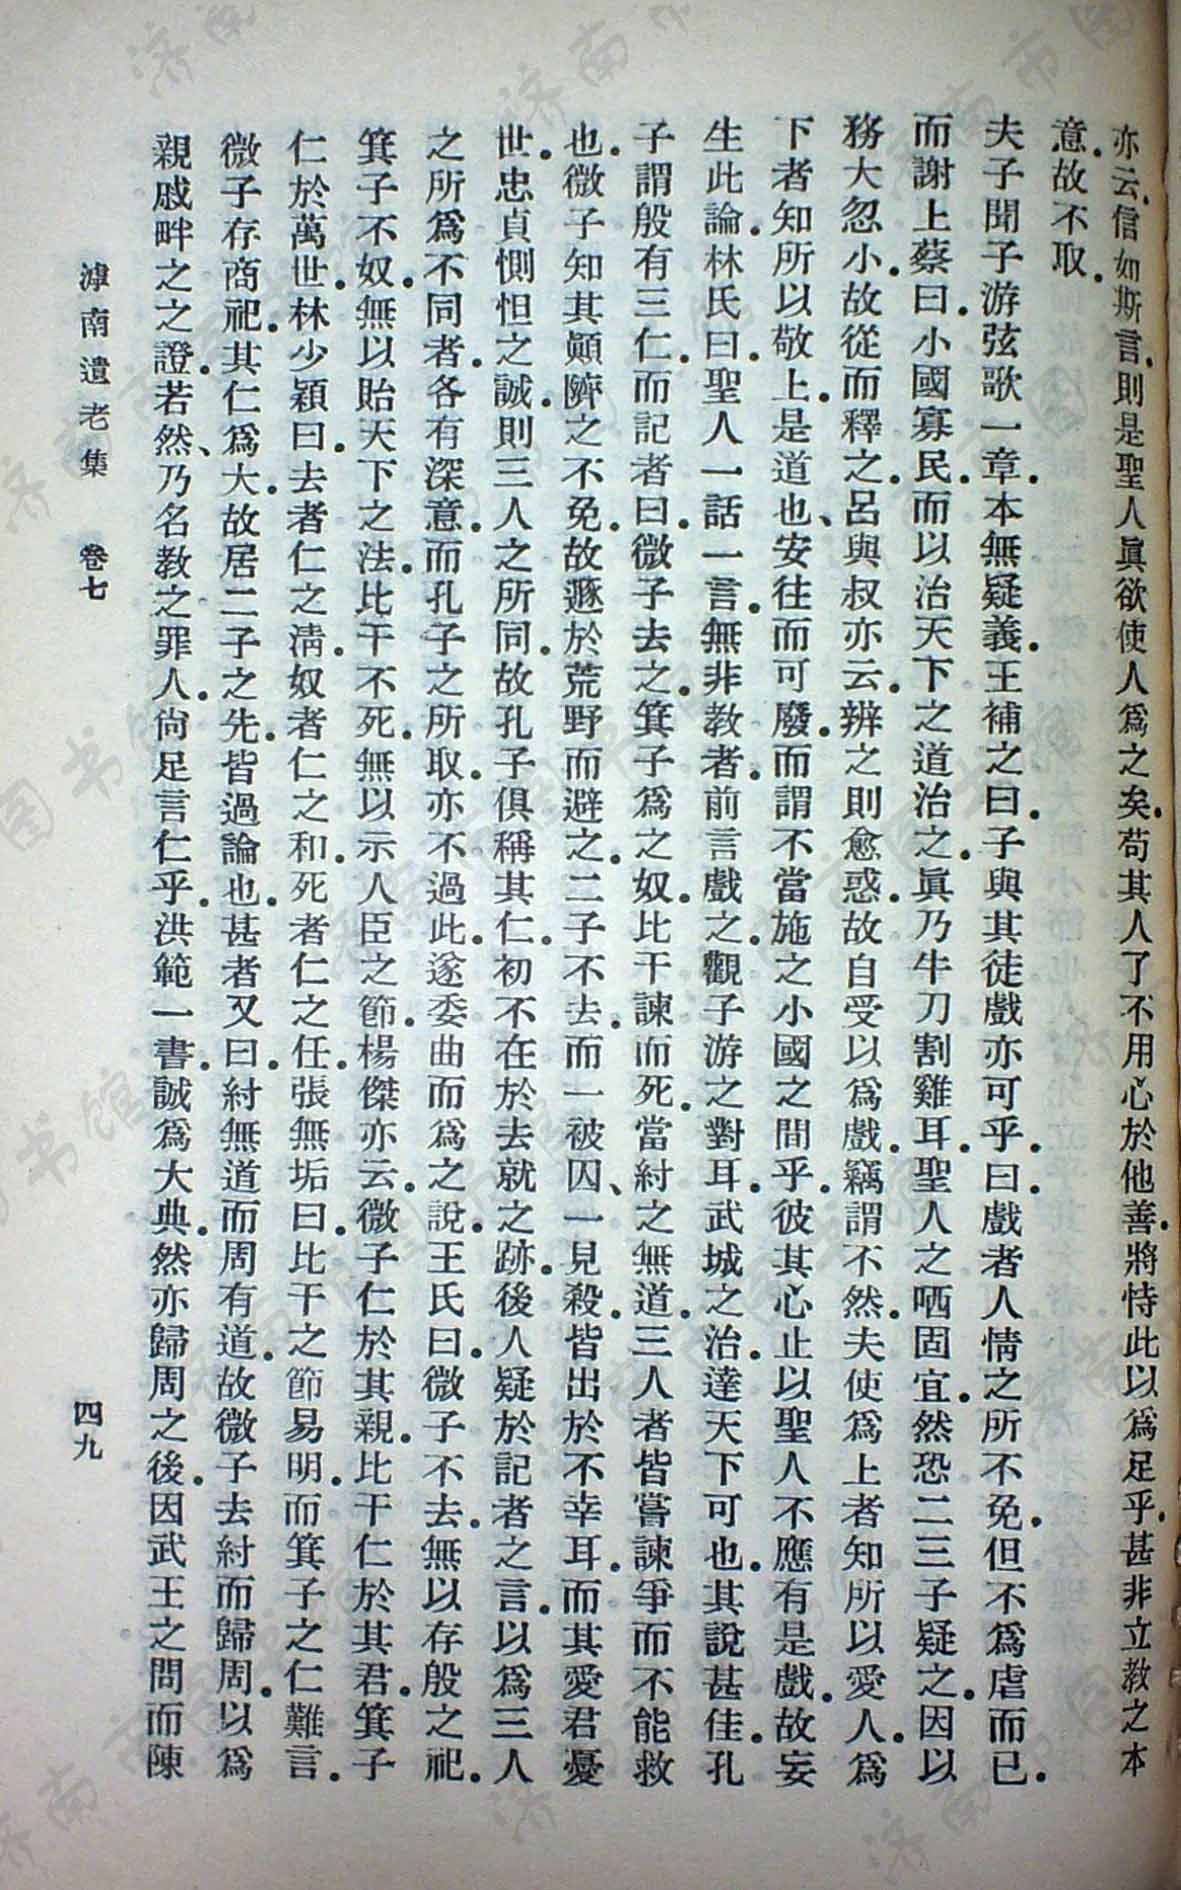 亦云.信如斯言.則是聖人眞欲使人爲之矣.苟其人了不用心於他善.將恃此以爲足乎.甚非立教之本
意.故不取.
夫子聞子游弦歌一章.本無疑義.王補之曰.子與其徒戲亦可乎.曰.戲者人情之所不免.但不爲虐而已.
而謝上蔡曰.小國寡民.而以治天下之道治之.眞乃牛刀割雞耳.聖人之哂固宜.然恐二三子疑之.因以
務大忽小.故從而釋之.呂與叔亦云.辨之則愈惑.故自受以爲戲.竊謂不然.夫使爲上者知所以愛人.爲
下者知所以敬上.是道也、安往而可廢.而謂不當施之小國之間乎.彼其心止以聖人不應有是戲.故妄
生此論.林氏曰.聖人一話一言.無非教者.前言戲之.觀子游之對耳.武城之治.達天下可也.其說甚佳.孔
子謂殷有三仁.而記者曰.微子去之.箕子爲之奴.比干諫而死.當紂之無道.三人者皆嘗諫爭而不能救
也.微子知其顚隮之不免.故遯於荒野而避之.二子不去.而一被囚、一見殺.皆出於不幸耳.而其愛君憂
世.忠貞惻怛之誠.則三人之所同.故孔子俱稱其仁.初不在於去就之跡.後人疑於記者之言.以爲三人
之所爲不同者.各有深意.而孔子之所取.亦不過此.遂委曲而爲之說.王氏曰.微子不去.無以存殷之祀.
箕子不奴.無以貽天下之法.比干不死.無以示人臣之節.楊傑亦云.微子仁於其親.比干仁於其君.箕子
仁於萬世.林少穎曰.去者仁之淸.奴者仁之和.死者仁之任.張無垢曰.比干之節易明.而箕子之仁難言.
微子存商祀.其仁爲大.故居二子之先.皆過論也.甚者又曰.紂無道而周有道.故微子去紂而歸周.以爲
親戚畔之之證.若然、乃名教之罪人.尙足言仁乎.洪範一書.誠爲大典.然亦歸周之後.因武王之問而陳
滹南遺老集 卷七 四九